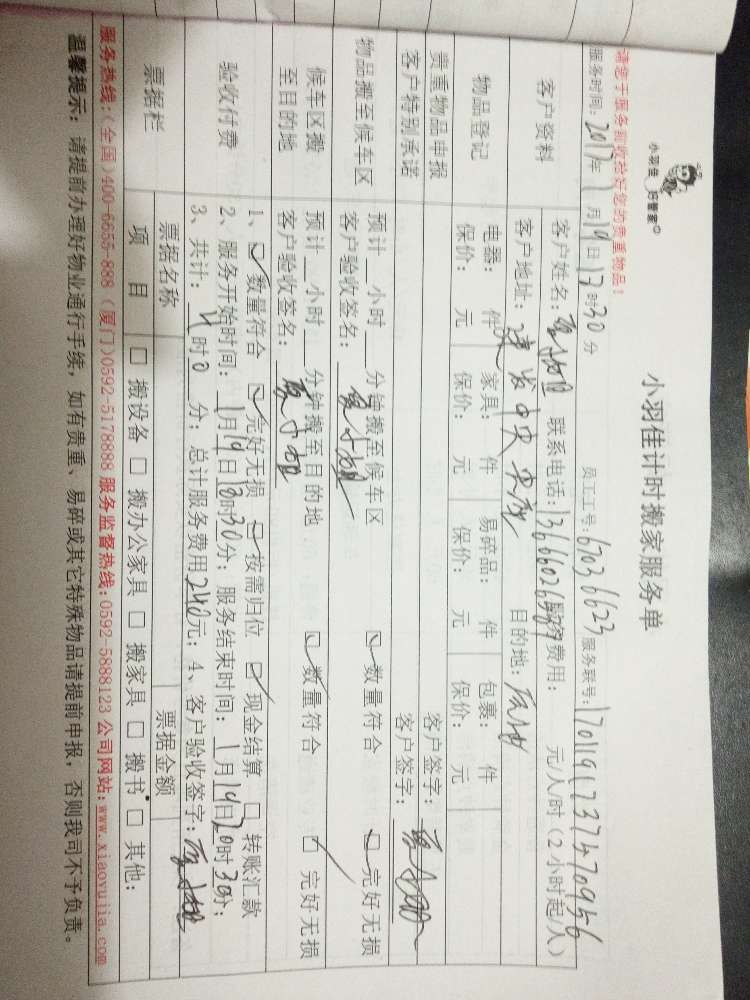 小羽佳 好管家
小羽佳计时搬家服务单
请您于服务前收捡好您的贵重物品！
服务时间：2017年1月19日 时30分 员工工号：67036623 服务联号：
客户资料
客户姓名： 联系电话： 费用： 元/人/时（2小时起/人）
客户地址：建发中央 目的地：
物品登记
电器： 件 家具： 件 易碎品： 件 包裹： 件
保价： 元 保价： 元 保价： 元 保价： 元
贵重物品申报 客户签字：
客户特别承诺 客户签字：
物品搬至候车区
预计 小时 分钟搬至候车区 数量符合 完好无损
客户验收签名：
候车区搬至目的地
预计 小时 分钟搬至目的地 数量符合 完好无损
客户验收签名：
验收付费
1、 数量符合 完好无损 按需归位 现金结算 转账汇款
2、服务开始时间：1月19日 时30分；服务结束时间：1月19日 时30分；
3、共计： 时0分；总计服务费用240元；4、客户验收签字：
票据栏
票据名称 票据金额
项目 搬设备 搬办公家具 搬家具 搬书 其他：
服务热线：(全国)400-6655-888 (厦门)0592-5178888 服务监督热线：0592-5888123 公司网站：www.xiaoyujia.com
温馨提示：请提前办理好物业通行手续，如有贵重、易碎或其它特殊物品请提前申报，否则我司不予负责。